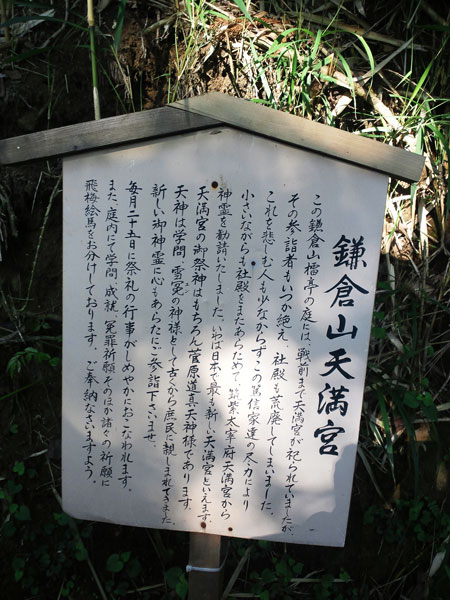 鎌倉山天満宮
この鎌倉山檑亭の庭には、戦前まで天満宮が祀られていましたが、
その参詣者もいつか絶え、社殿も荒廃してしまいました。
これを悲しむ人も少なからず、この篤信家達の尽力により
小さいながらも社殿をまたあらためて、筑紫太宰府天満宮から
神霊を勧請いたしました。いわば日本で最も新しい天満宮といえます。
天満宮の御祭神はもちろん菅原道真天神様であります。
天神は学問、雪冤の神様として古くから庶民に親しまれてきました。
新しい御神霊に心もあらたにご参詣下さいませ。
毎月二十五日に祭礼の行事がしめやかにおこなわれます。
また、庭内にて学問、成就、冤罪祈願、そのほか諸々の祈願に
飛梅絵馬をお分けしております。ご奉納なさいますよう。